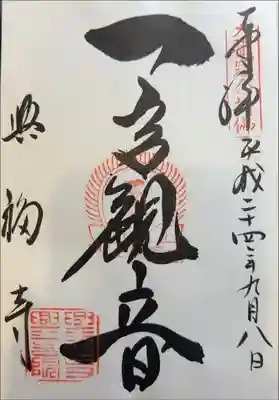 奉拝 平成二十四年九月八日
一言観音
興福寺